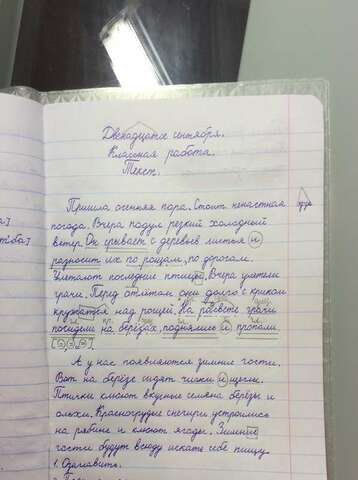 Двенадцатое сентября.
Классная работа.
Текст.
Пришла осенняя пора. Стоит ненастная
погода. Вчера подул резкий холодный
ветер. Он срывает с деревьев листья и
разносит их по рощам, по дорогам.
Улетают последние птицы. Вчера улетели
грачи. Перед отлётом они долго с криком
кружатся над рощей. На рассвете грачи
посидели на берёзах, поднялись и пропали.
А у нас появляются зимние гости.
Вот на берёзе сидят чижи и щеглы.
Птички клюют вкусные семена берёзы и
ольхи. Красногрудые снегири устроились
на рябине и клюют ягоды. Зимние
гости будут всюду искать себе пищу.
1. Озаглавить.